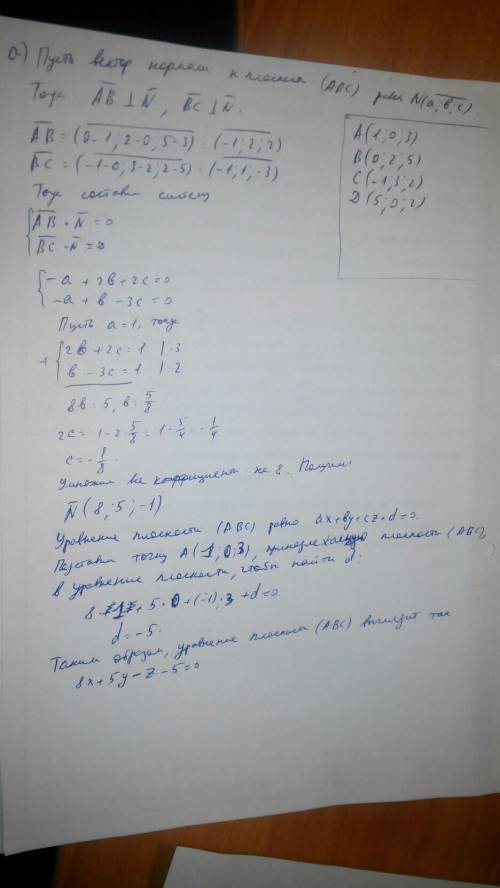 а) Пусть вектор нормали к плоскости (ABC) равен N(a; b; c).
Тогда AB ⊥ N, BC ⊥ N.
AB = (0-1; 2-0; 5-3) = (-1; 2; 2)
BC = (-1-0; 3-2; 2-5) = (-1; 1; -3)
Тогда составим систему
{AB · N = 0
BC · N = 0
{-a + 2b + 2c = 0
-a + b - 3c = 0
Пусть a = 1, тогда
+ {2b + 2c = 1 | · 3
b - 3c = 1 | · 2
8b = 5, b = 5/8
2c = 1 - 2 · 5/8 = 1 - 5/4 = -1/4
c = -1/8.
Умножим все коэффициенты на 8. Получим:
N (8; 5; -1)
Уравнение плоскости (ABC) равно ax+by+cz+d=0.
Подставим точку A(1; 0; 3), принадлежащую плоскости (ABC),
в уравнение плоскости, чтобы найти d:
8 · 1 + 5 · 0 + (-1) · 3 + d = 0
d = -5.
Таким образом, уравнение плоскости (ABC) выглядит так
8x + 5y - z - 5 = 0
A(1; 0; 3)
B(0; 2; 5)
C(-1; 3; 2)
D(5; 0; 2)